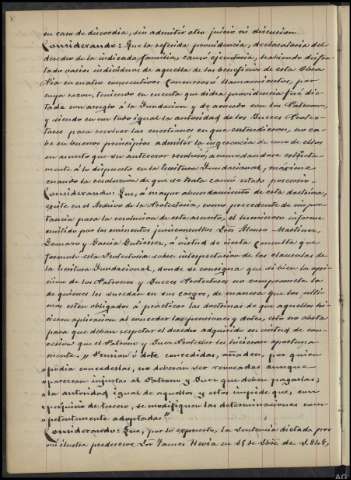 en caso de discordia, sin admitir otro juicio ni discusion.
Considerando: Que la referida providencia, declaratoria del
derecho de la indicada familia, causó ejecutoria, habiendo disfru-
tado varios individuos de aquella de los beneficios de esta Obra
Pia en cuatro consecutivas llamamientos, por
cuya razon, teniendo en cuenta que dicha providencia fué dic-
tada con arreglo á la Fundacion y de acuerdo con los Patronos,
y siendo en un todo igual la autoridad de los Jueces Protec-
tores para resolver las cuestiones en que entendieron, no ca-
be en buenos principios admitir la ingerencia de uno de ellos
en asunto que su antecesor resolvió, acomodandose estricta-
mente á lo dispuesto en la Escritura fundacional, máxime
cuando la resolucion de que se trata causó estado posesorio.
Considerando: Que, á mayor abundamiento de esta doctrina,
existe en el Archivo de la Protectoria, como precedente de impor-
tancia para la resolucion de este asunto, el luminoso informe
emitido por los eminentes jurisconsultos Sres. Alonso Martinez,
y Garcia Gutierrez, á virtud de cierta Consulta que
formuló esta Protectoria sobre interpretacion de las clausulas de
la Escritura Fundacional, donde se consigna que si bien la opi-
nion de los Patronos y Jueces Protectores no compromete la
de quienes les suceden en sus cargos, de manera que los últi-
mos esten obligados á practicar las doctrinas de que aquellos hi-
cieron aplicacion al conceder las pensiones y dotes, esto no obsta
para que deban respetar el derecho adquirido en virtud de con-
cesion que el Patrono y Juez Protector les hicieran oportuna-
mente. Y Pension ó dote concedidas, añaden, por quien
podia concederlas, no deberan ser revocadas aunque
aparezcan injustas al Patrono y Juez que deben pagarlas;
la autoridad igual de aquellos y estos impide que, con
perjuicio de tercero, se modifiquen las determinaciones com-
petentemente adoptadas."
Considerando: Que, por lo expuesto, la Sentencia dictada por
mi ilustre predecesor Sr. Hevia en de de 1.868,